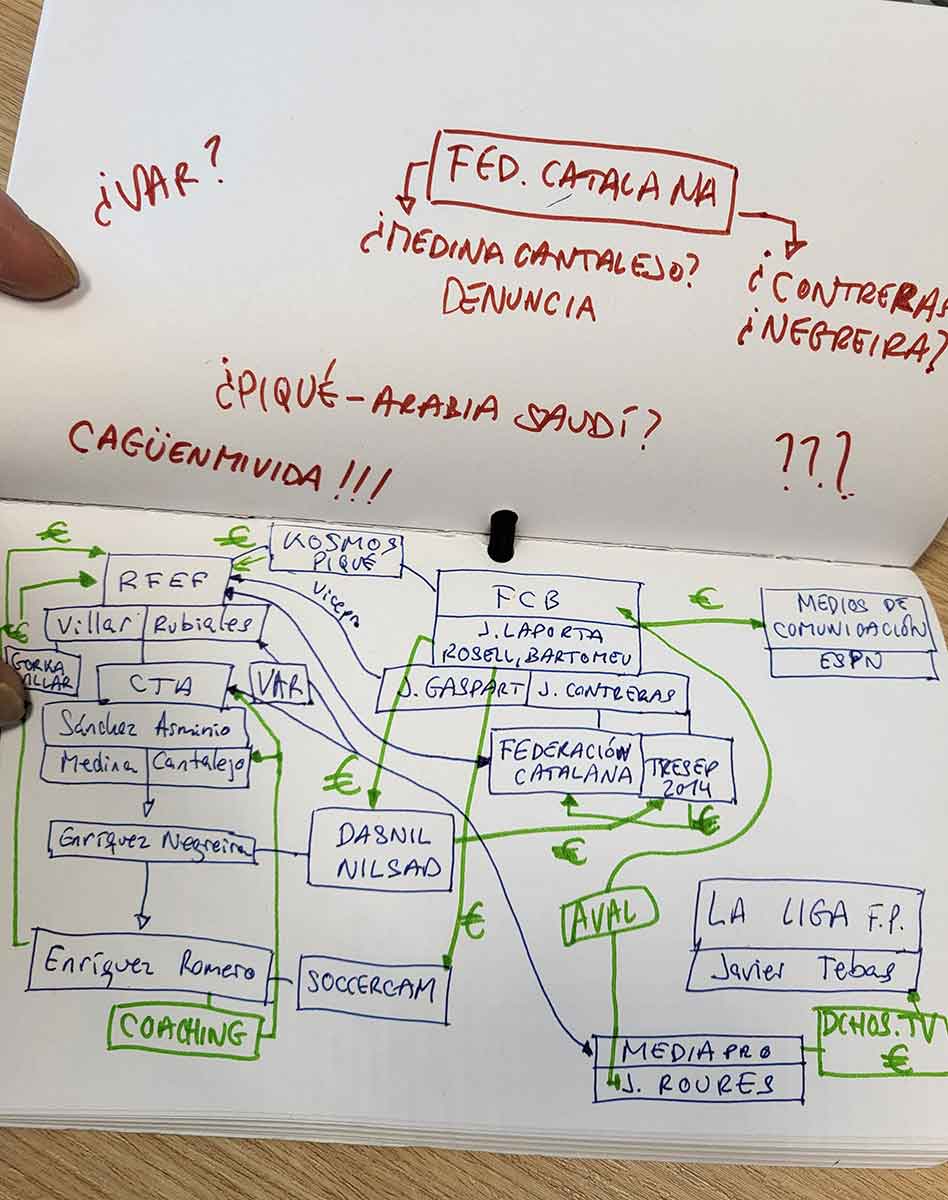 ¿VAR?
FED. CATALANA
¿MEDINA CANTALEJO?
DENUNCIA
¿CONTRERAS
¿NEGREIRA?
¿PIQUÉ-ARABIA SAUDÍ?
CAGÜENMIVIDA!!!
???
€
€
KOSMOS
PIQUÉ
RFEF
Vicepr
FCB
€
MEDIOS DE
COMUNICACIÓN
ESPN
Villar Rubiales
J. LAPORTA
ROSELL, BARTOMEU
€
GORKA
VILLAR
CTA
VAR
J. GASPART J. CONTRERAS
Sánchez Asminio
Medina Cantalejo
FEDERACIÓN
CATALANA
TRESEP
2014
€
€
Enríquez Negreira
DASNIL
NILSAD
€
€
AVAL
LA LIGA F.P.
Javier Tebas
Enríquez Romero
SOCCERCAM
COACHING
DCHOS.TV
€
MEDIAPRO
J. ROURES